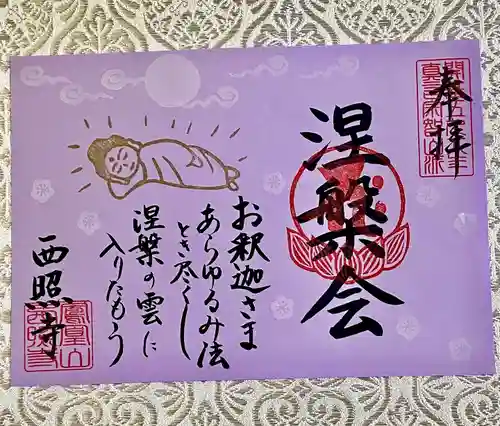 奉拝
涅槃会
お釈迦さま
あらゆるみ法
とき尽くし
涅槃の雲に
入りたもう
西照寺